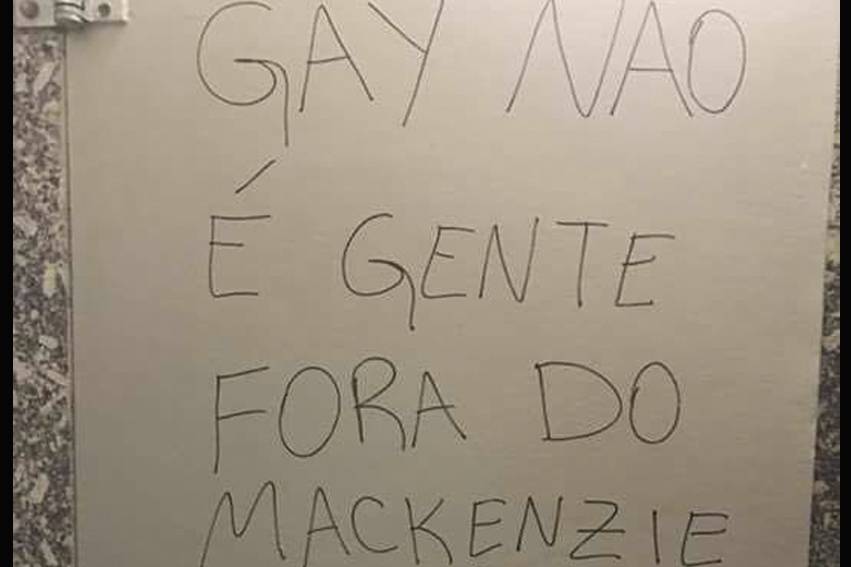 GAY NAO
É GENTE
FORA DO
MACKENZIE